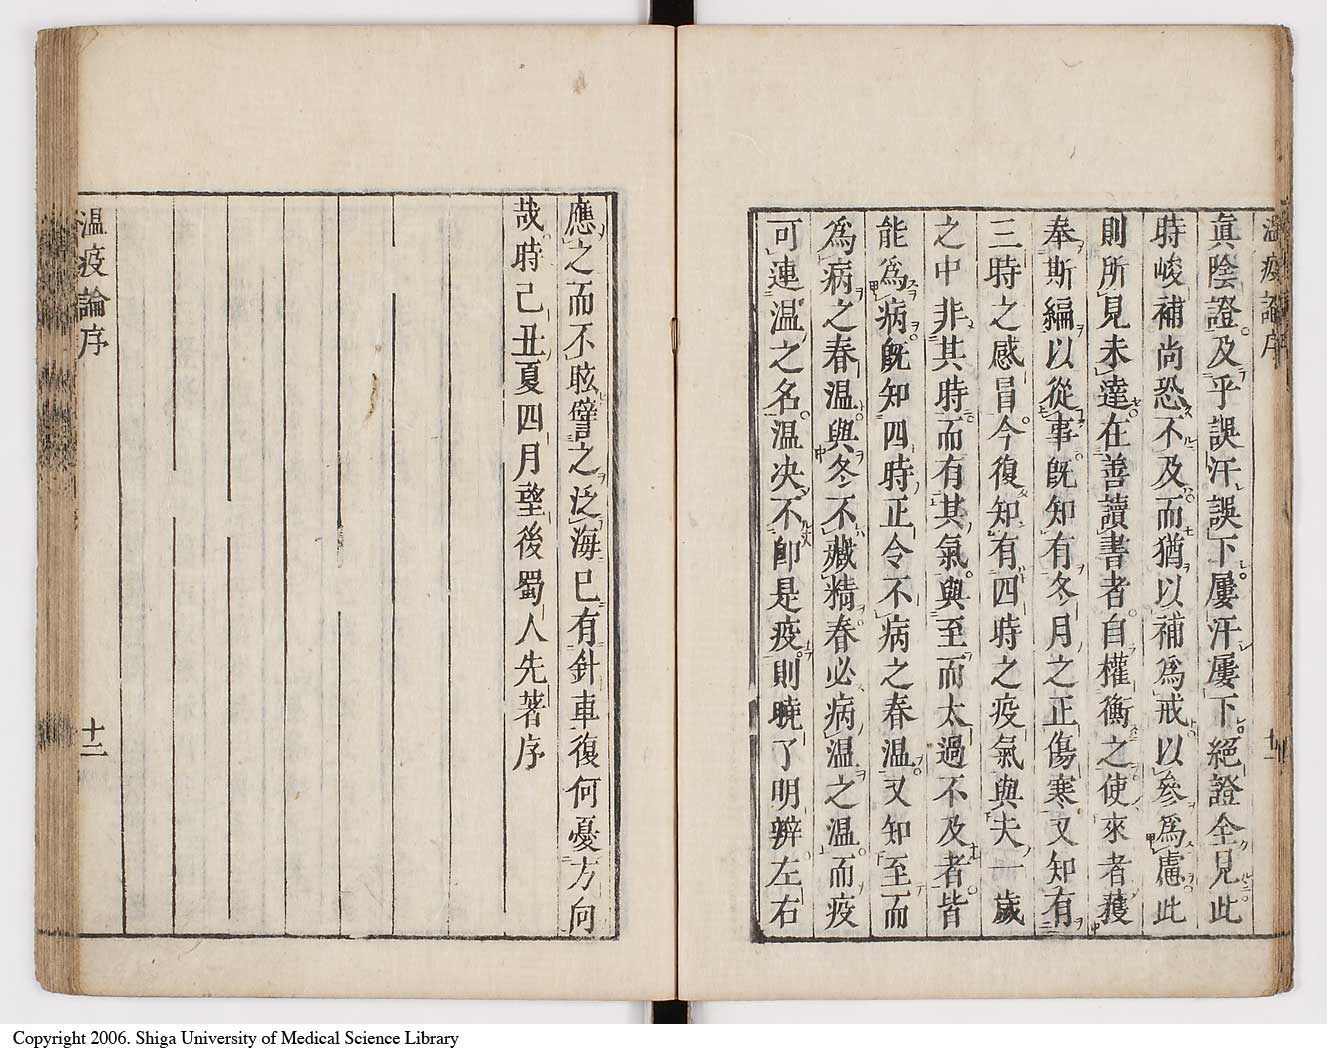 温疫論序
十一
眞陰證及乎誤汗誤下屢汗屢下絕證仝見此
時峻補尚恐不及而猶以補爲戒以參爲慮此
則所見未達在善讀書者自權衡之使來者獲
奉斯編以從事既知有冬月之正傷寒又知有
三時之感冒今復知有四時之疫氣與夫一歲
之中非其時而有其氣與至而太過不及者皆
能爲病既知四時正令不病之春溫又知至而
爲病之春溫與冬不藏精春必病溫之溫而疫
可連溫之名溫決不卽是疫則曉了明辧左右
應之而不眩譬之泛海已有針車復何憂方向
哉時己丑夏四月望後蜀人先著序
温疫論序
十二
Copyright 2006. Shiga University of Medical Science Library